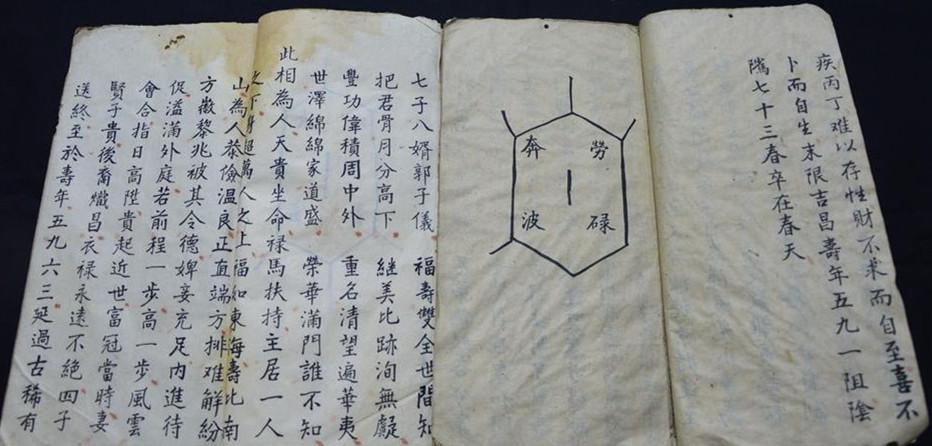 疾丙丁难以存性財不求而自至喜不
卜而自生末限吉昌壽年五九一阻陰
隲七十三春卒在春天
勞碌
奔波
七子八婿郭子儀 福壽雙全世間知
把君骨月分高下 繼美比跡洵無
豐功偉積周中外 重名清望遍華夷
世澤綿綿家道盛 榮華滿門誰不知
此相為人天貴坐命禄馬扶持主居一人
之下身超萬人之上福如東海壽比南
山為人恭儉温良正直端方排难解紛
方徵黎兆被其令德婢妾充足内進待
促溢滿外庭若前程一步高一步風雲
會合指日高陞貴起近世富冠當時妻
賢子貴後裔熾昌衣禄永遠不絕四子
送終至於壽年五九六三延過古稀有